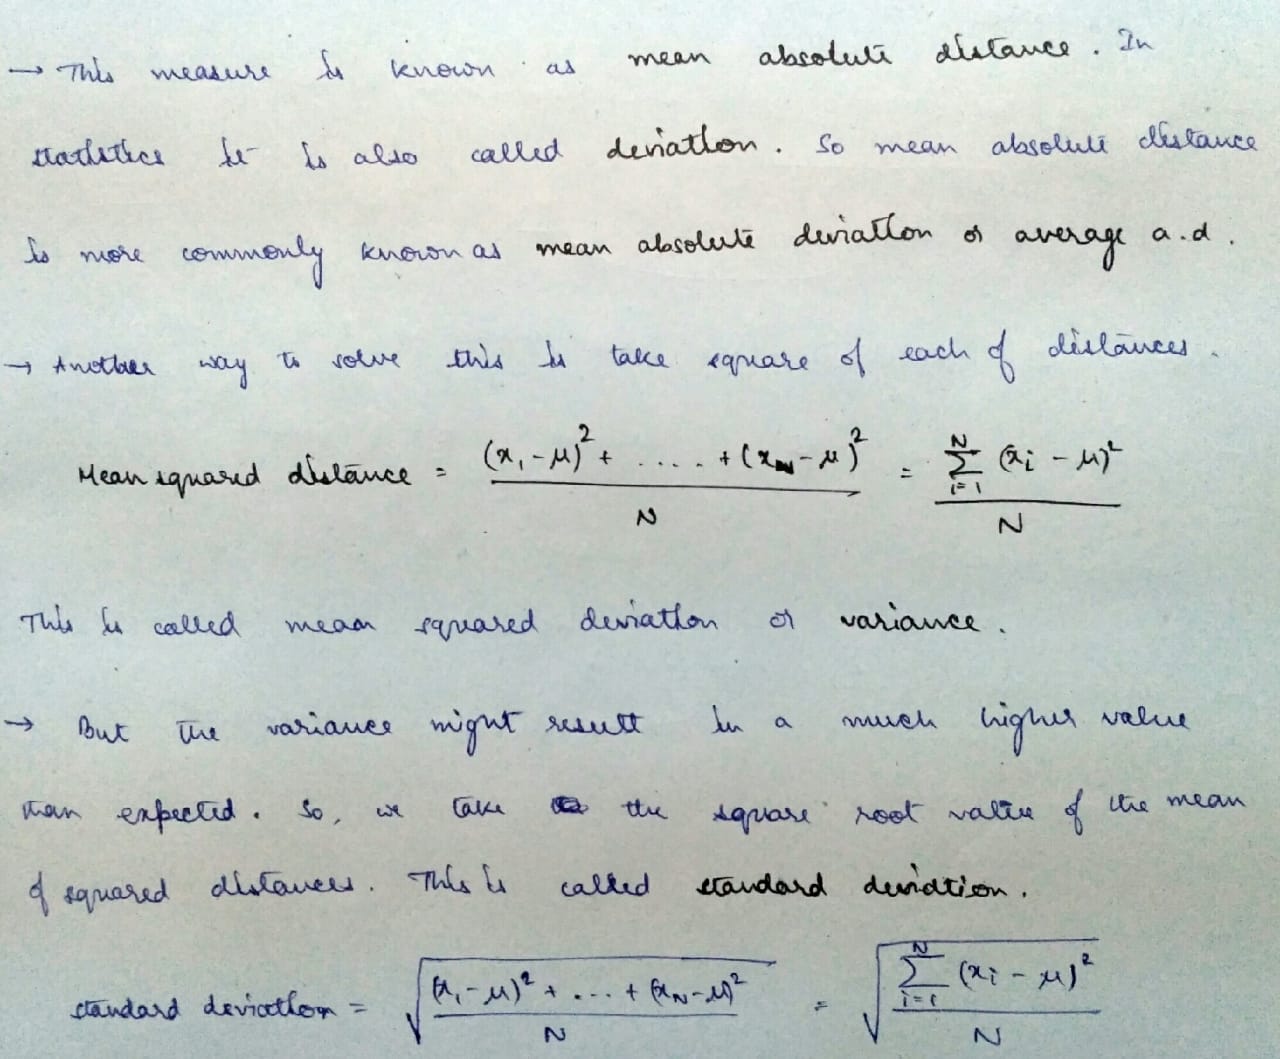 → This measure is known as mean absolute distance. In
statistics it is also called deviation. So mean absolute distance
is more commonly known as mean absolute deviation or average a.d.
→ Another way to solve this is take square of each of distances.
Mean squared distance = ((x₁-μ)² + ..... + (x_N-μ)²) / N = (∑_{i=1}^{N} (x_i - μ)²) / N
This is called mean squared deviation or variance.
→ But the variance might result in a much higher value
than expected. So, we take the square root value of the mean
of squared distances. This is called standard deviation.
standard deviation = √(((x₁-μ)² + .... + (x_N-μ)²) / N) = √((∑_{i=1}^{N} (x_i - μ)²) / N)